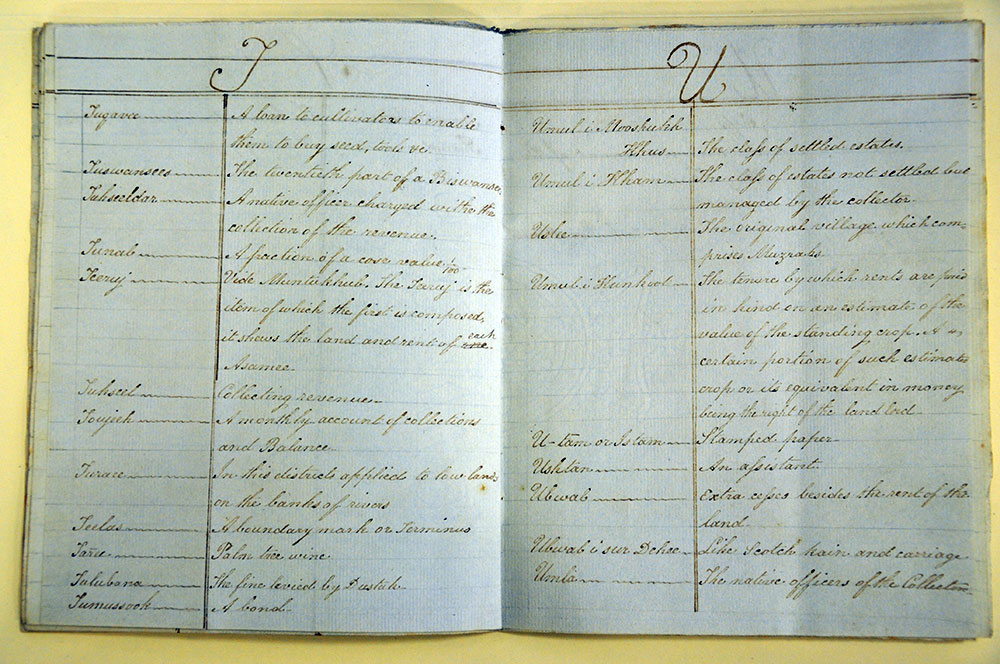 T
Tugavee A loan to cultivators to enable
them to buy seed, tools &c.
Tuswansees The twentieth part of a Biswansee
Tuhseeldar A native officer charged with the
collection of the revenue.
Tunab A fraction of a coss value 1/100
Teeruj Vide Muntukhub. The Teeruj is the
item of which the first is composed,
it shews the land and rent of each
Asamee.
Tuhseel Collecting revenue
Toujeeh A monthly account of collections
and Balance.
Turaee In this districts applied to low land
on the banks of rivers
Teelas A boundary mark or Terminus
Palm tree wine
Tulubana The fine levied by Dustuk
Tumussook A bond.
U
Umul i Mooshukh
Khus The class of settled estates.
Umul i Kham The class of estates not settled but
managed by the collector
Uslee The original village which com-
prises Muzrahs
Umul i Kunkoot The tenure by which rents are paid
in kind on an estimate of the
value of the standing crop. A
certain portion of such estimated
crop or its equivalent in money
being the right of the land lord
U-tam or Istam Stamped paper
Ushtàn An assistant.
Ubwab Extra cesses besides the rent of the
land.
Ubwab i sur Dehee Like Scotch hain and carriage
Umla The native officers of the Collector